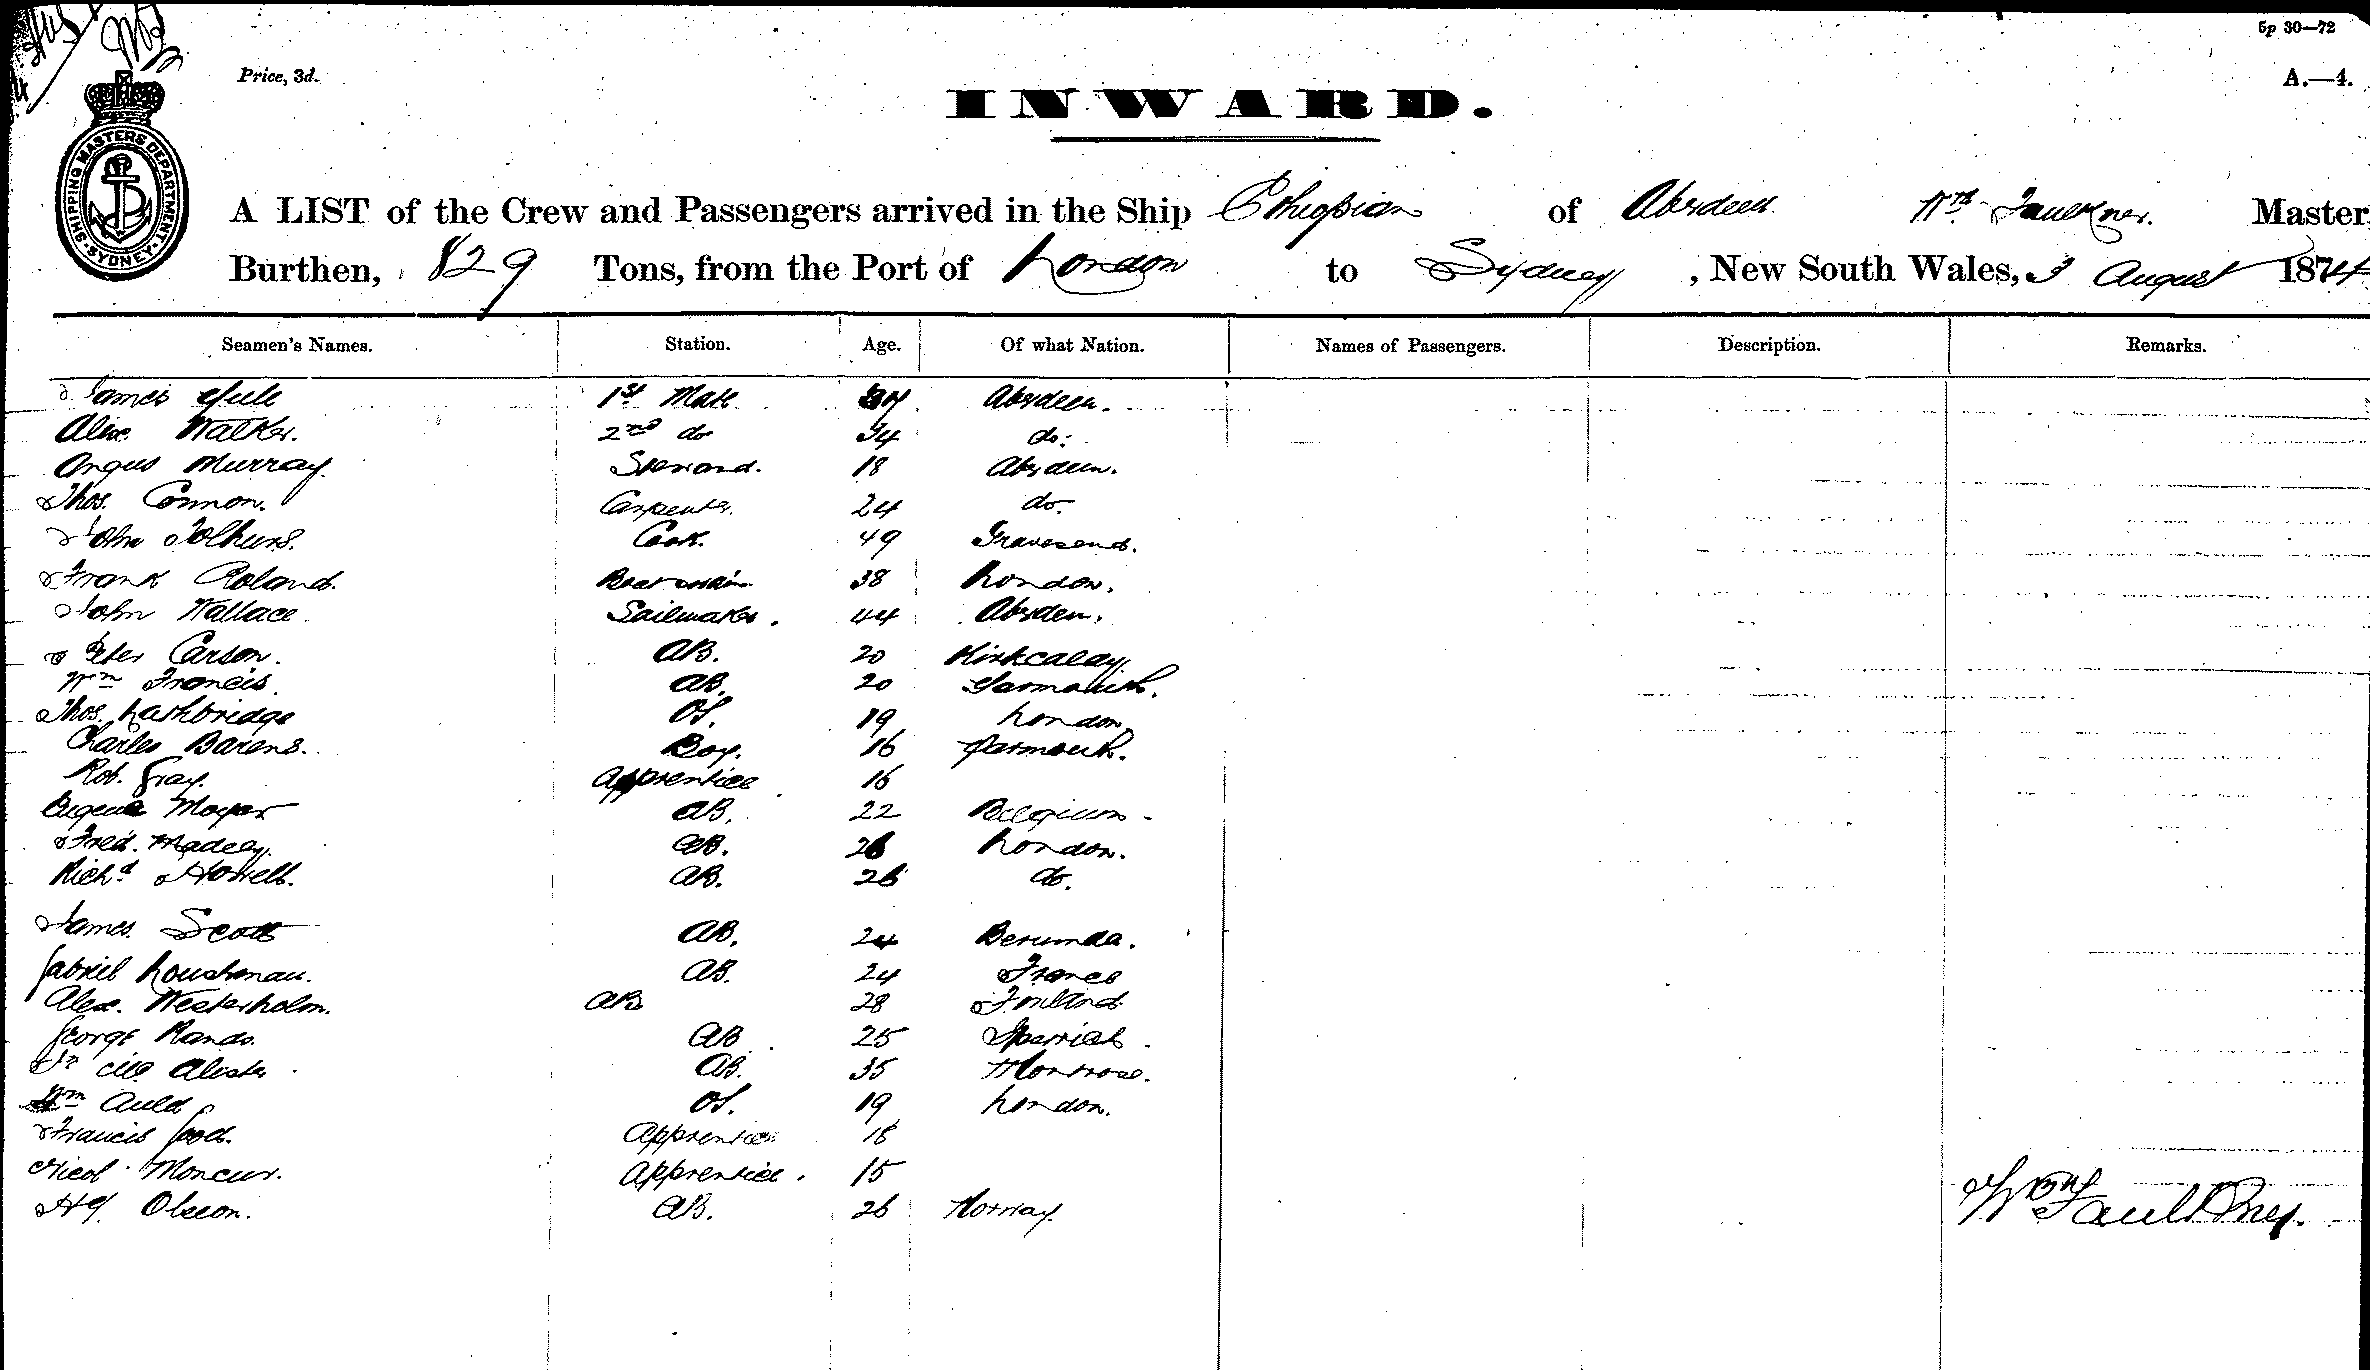 5p 30—72
Price, 3d.
A.—4.
INWARD.
SHIPPING MASTERS DEPARTMENT SYDNEY
A LIST of the Crew and Passengers arrived in the Ship Ethiopian of Aberdeen Wm Faulkner. Master
Burthen, 829 Tons, from the Port of London to Sydney, New South Wales, 3 August 1874
Seamen's Names. Station. Age. Of what Nation. Names of Passengers. Description. Remarks.
James Yule 1st Mate Aberdeen.
Alex. Walker. 2nd do 34 do.
Angus Murray. Steward. 18 Aberdeen.
Thos. Connon. Carpenter. 24 do.
John Tolhurst. Cook. 49 Gravesend.
Frank Roland. Boatswain 38 London.
John Wallace. Sailmaker. 44 Aberdeen.
Peter Carson. AB. 20 Kirkcaldy.
Wm Francis. AB. 20 Yarmouth.
Thos. Lashbridge OS. 19 London
Charles Barens. Boy. 16 Yarmouth.
Rob. Gray. Apprentice 16
Eugene Moyer AB. 22 Belgium.
Fred. Madely. AB. 26 London.
Richd Howell. AB. 26 do.
James Scott AB. 24 Bermuda.
Gabriel AB. 24 France
Alex. Westerholm. AB 28
George Rands. AB 25
AB. 35 Montrose.
Wm Auld OS. 19 London.
Francis Good. Apprentice 16
Nicol Moncur. Apprentice. 15
Olseon. AB. 26 Norway.
Wm Faulkner.